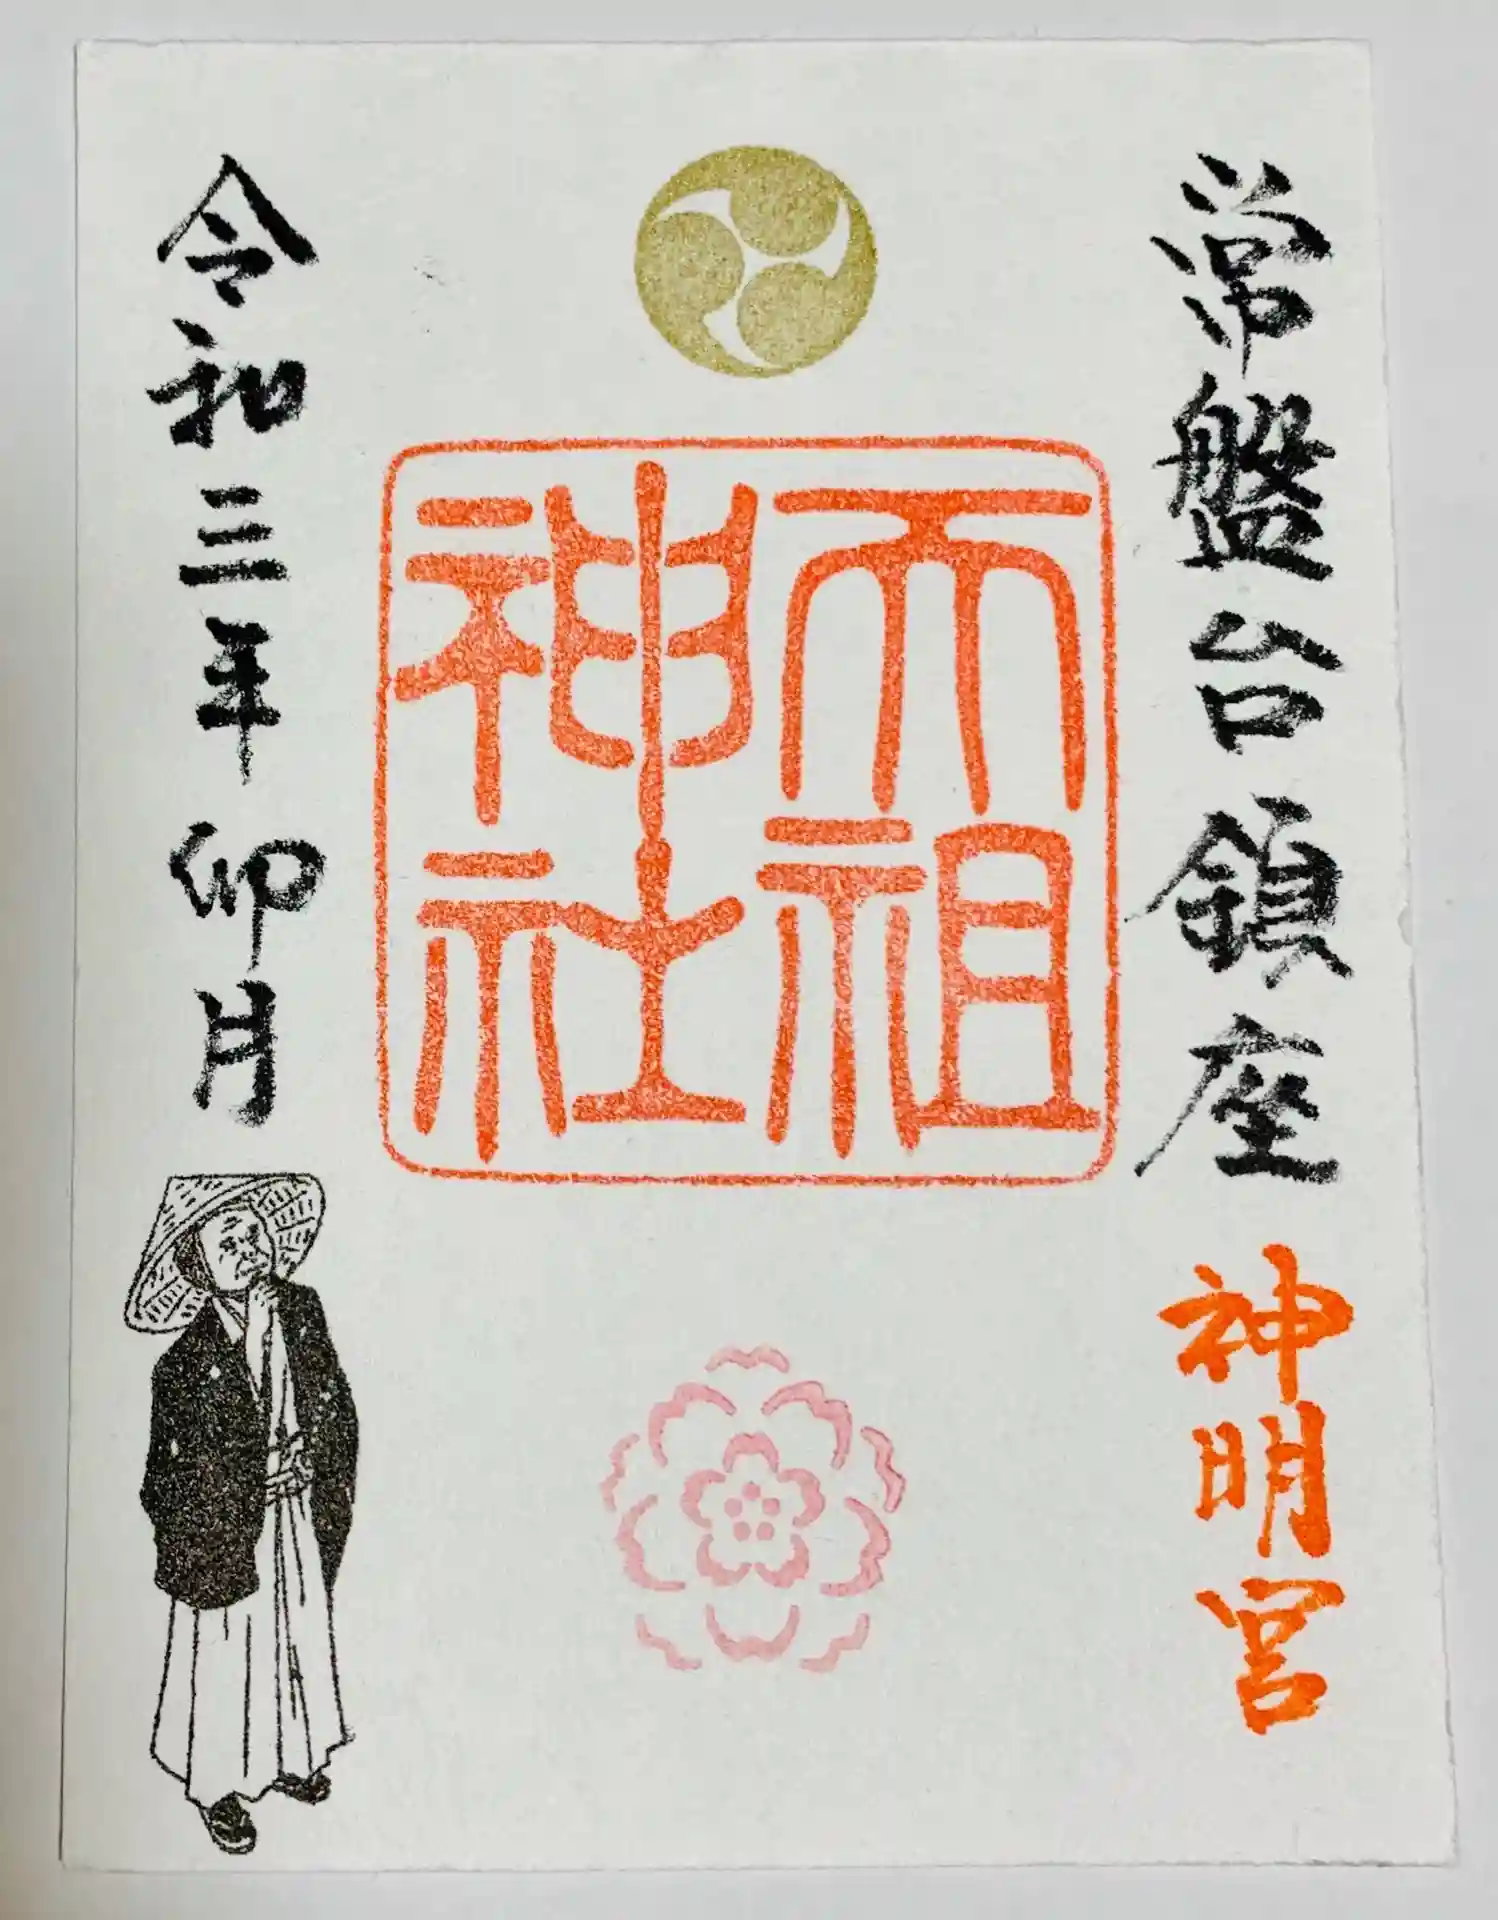 常盤台鎮座 神明宮
天祖
神社
令和三年 卯月